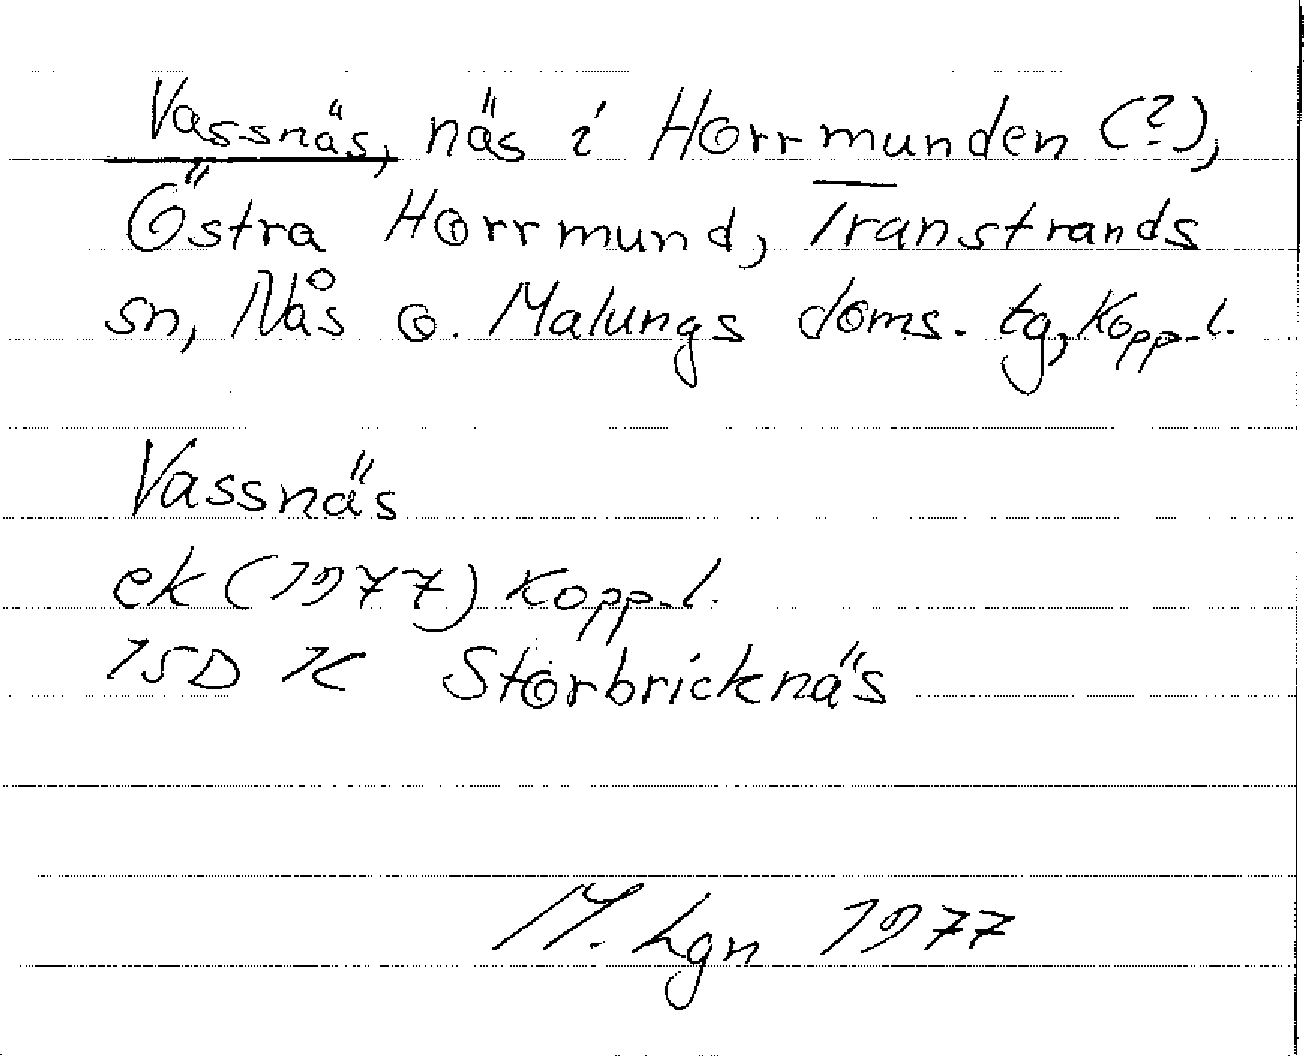 Vassnäs, näs i Horrmunden (?),
Östra Horrmund, Transtrands
sn, Nås o. Malungs doms. tg, Kopp. l.
Vassnäs
ek (1977) Kopp. l.
15D IC Storbricknäs
M. Lgn 1977